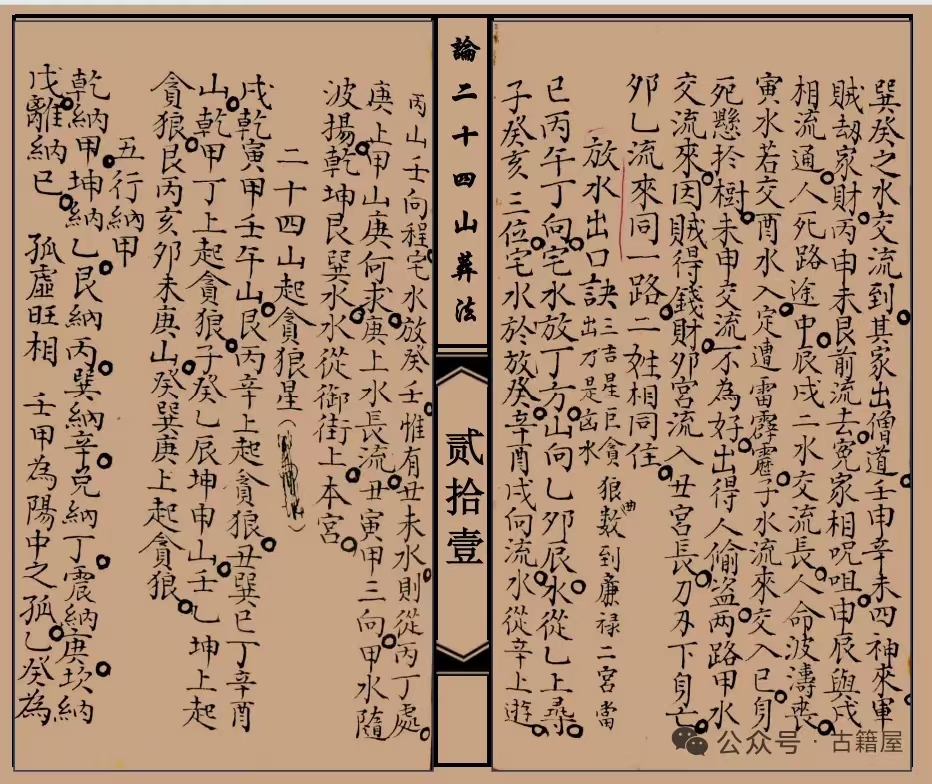 巽癸之水交流到其家出僧道壬申辛未四神來軍
賊劫家財丙申未艮前流去冤家相呪咀申辰與戌
相流通人死路途中辰戌二水交流長人命波濤喪
寅水若交酉水入定遭雷霹靂子水流來交入巳身
死懸於樹未申交流不為好出得人偷盗两路甲水
交流來因賊得錢財夘宮流入丑宮長刀刄下身亡
夘乚流來同一路二姓相同住
放水出口訣 三吉星巨貪狼數到廉禄二宮當出乃是凶水
曲
巳丙午丁向宅水放丁方山向乚夘辰水從乚上尋
子癸亥三位宅水於放癸辛酉戌向流水從辛上遊
論二十四山葬法
贰拾壹
丙山壬向程宅水放癸壬惟有丑未水則從丙丁處
庚上甲山庚何求庚上水長流丑寅甲三向甲水隨
波揚乾坤艮巽水水從御街上本宮
二十四山起貪狼星
戌乾寅甲壬午山艮丙辛上起貪狼丑巽巳丁辛酉
山乾甲丁上起貪狼子癸乚辰坤申山壬乚坤上起
貪狼艮丙亥夘未庚山癸巽庚上起貪狼
五行納甲
乾納甲坤納乚艮納丙巽納辛兑納丁震納庚坎納
戊離納巳 孤虚旺相 壬甲為陽中之孤乚癸為
公众号·古籍屋